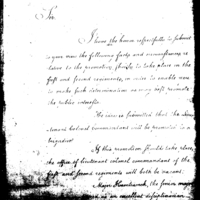 Sir.
I have the honor respectfully to submit
to your view the following facts and circumstances, in
to the promotion, shortly to take place in the
first and second regiments, in order to enable you
to make such determination as may best promote
the public interests.
It is submitted that the
Colonel Commandant will be promoted to a
brigadier
If this promotion should take place,
the offices of lieutenant colonel commandant of the
first and second regiments will both be vacant.
Major Hamtramck, the senior major
is an excellent disciplinarian